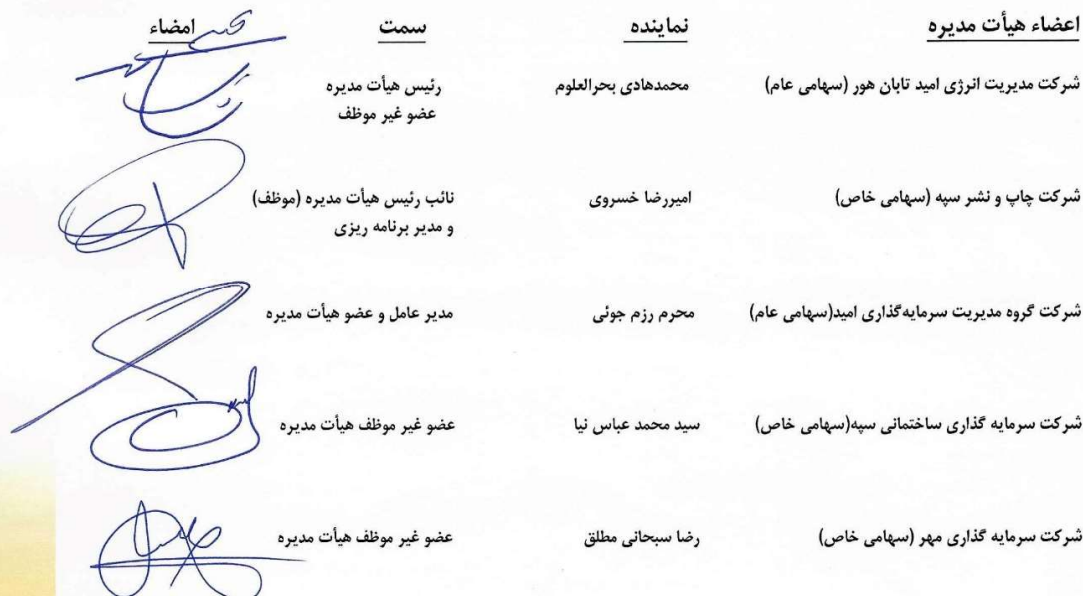 اعضاء هیأت مدیره نماینده سمت امضاء
شرکت مدیریت انرژی امید تابان هور (سهامی عام) محمدهادی بحرالعلوم رئیس هیأت مدیره
عضو غیر موظف
شرکت چاپ و نشر سپه (سهامی خاص) امیررضا خسروی نائب رئیس هیأت مدیره (موظف)
و مدیر برنامه ریزی
شرکت گروه مدیریت سرمایه‌گذاری امید(سهامی عام) محرم رزم جوئی مدیر عامل و عضو هیأت مدیره
شرکت سرمایه گذاری ساختمانی سپه(سهامی خاص) سید محمد عباس نیا عضو غیر موظف هیأت مدیره
شرکت سرمایه گذاری مهر (سهامی خاص) رضا سبحانی مطلق عضو غیر موظف هیأت مدیره